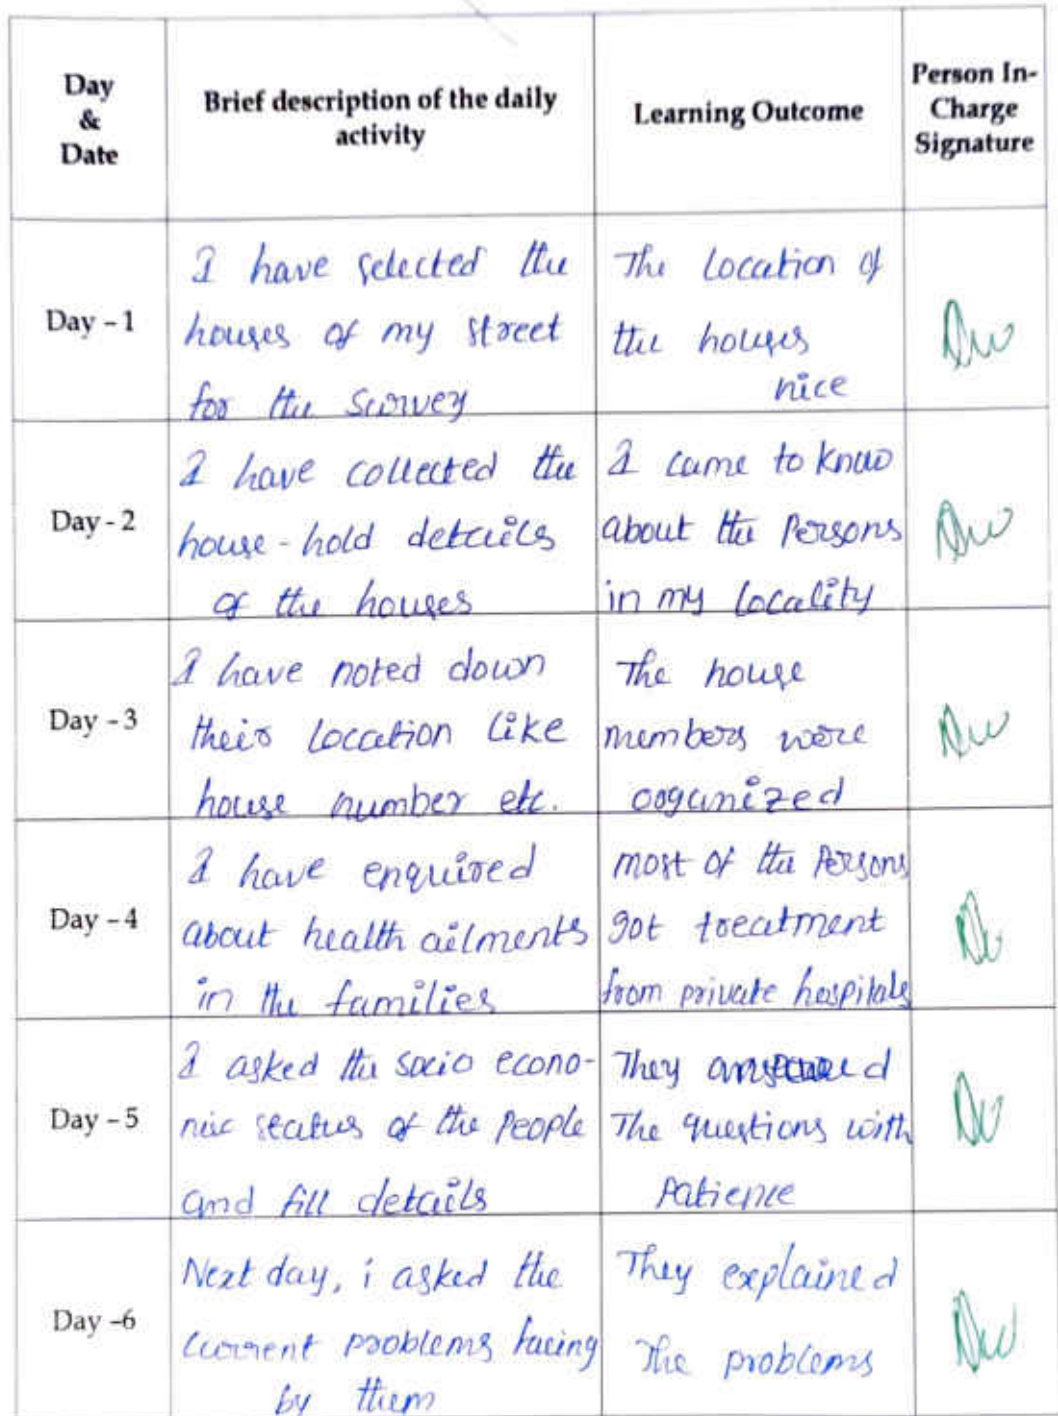 Day
&
Date
Brief description of the daily
activity
Learning Outcome
Person In-
Charge
Signature
Day - 1
I have selected the
houses of my street
for the survey
The location of
the houses
nice
Day - 2
I have collected the
house-hold details
of the houses
I came to know
about the persons
in my locality
Day - 3
I have noted down
their location like
house number etc.
The house
members were
organized
Day - 4
I have enquired
about health ailments
in the families
most of the persons
got treatment
from private hospitals
Day - 5
I asked the socio econo-
mic status of the people
and fill details
They answered
The questions with
patience
Day -6
Next day, i asked the
current problems facing
by them
They explained
The problems